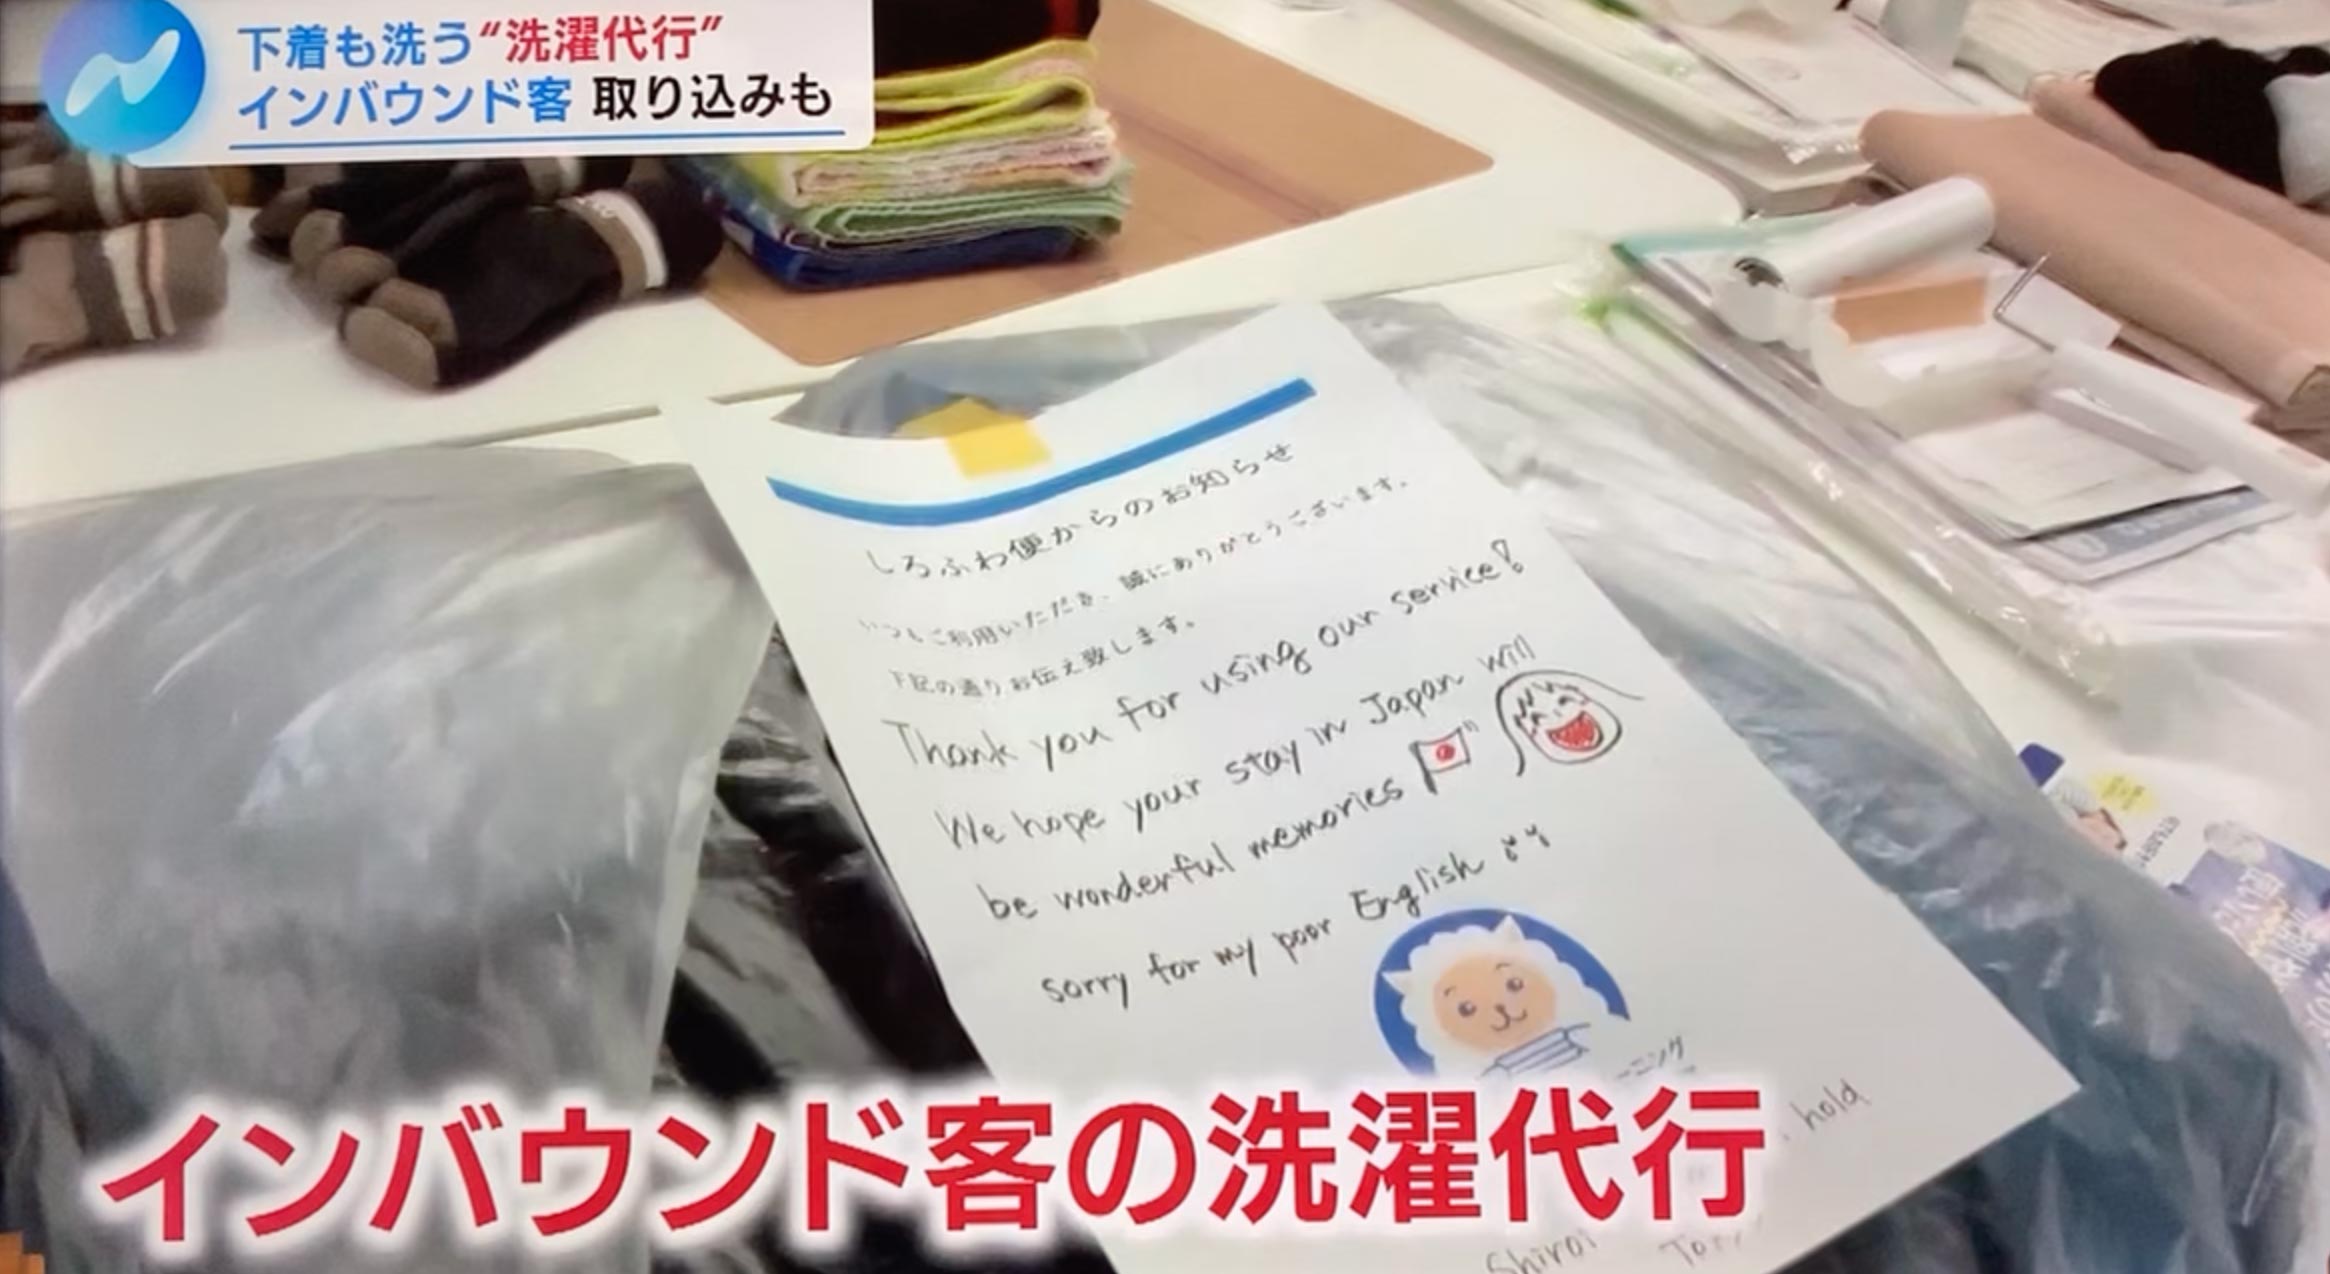 下着も洗う“洗濯代行”
インバウンド客 取り込みも
しろふわ便からのお知らせ
いつもご利用いただき、誠にありがとうございます。
下記の通りお伝え致します。
Thank you for using our service!
We hope your stay in Japan will
be wonderful memories
sorry for my poor English
ーニング
hold
インバウンド客の洗濯代行
Shiroi